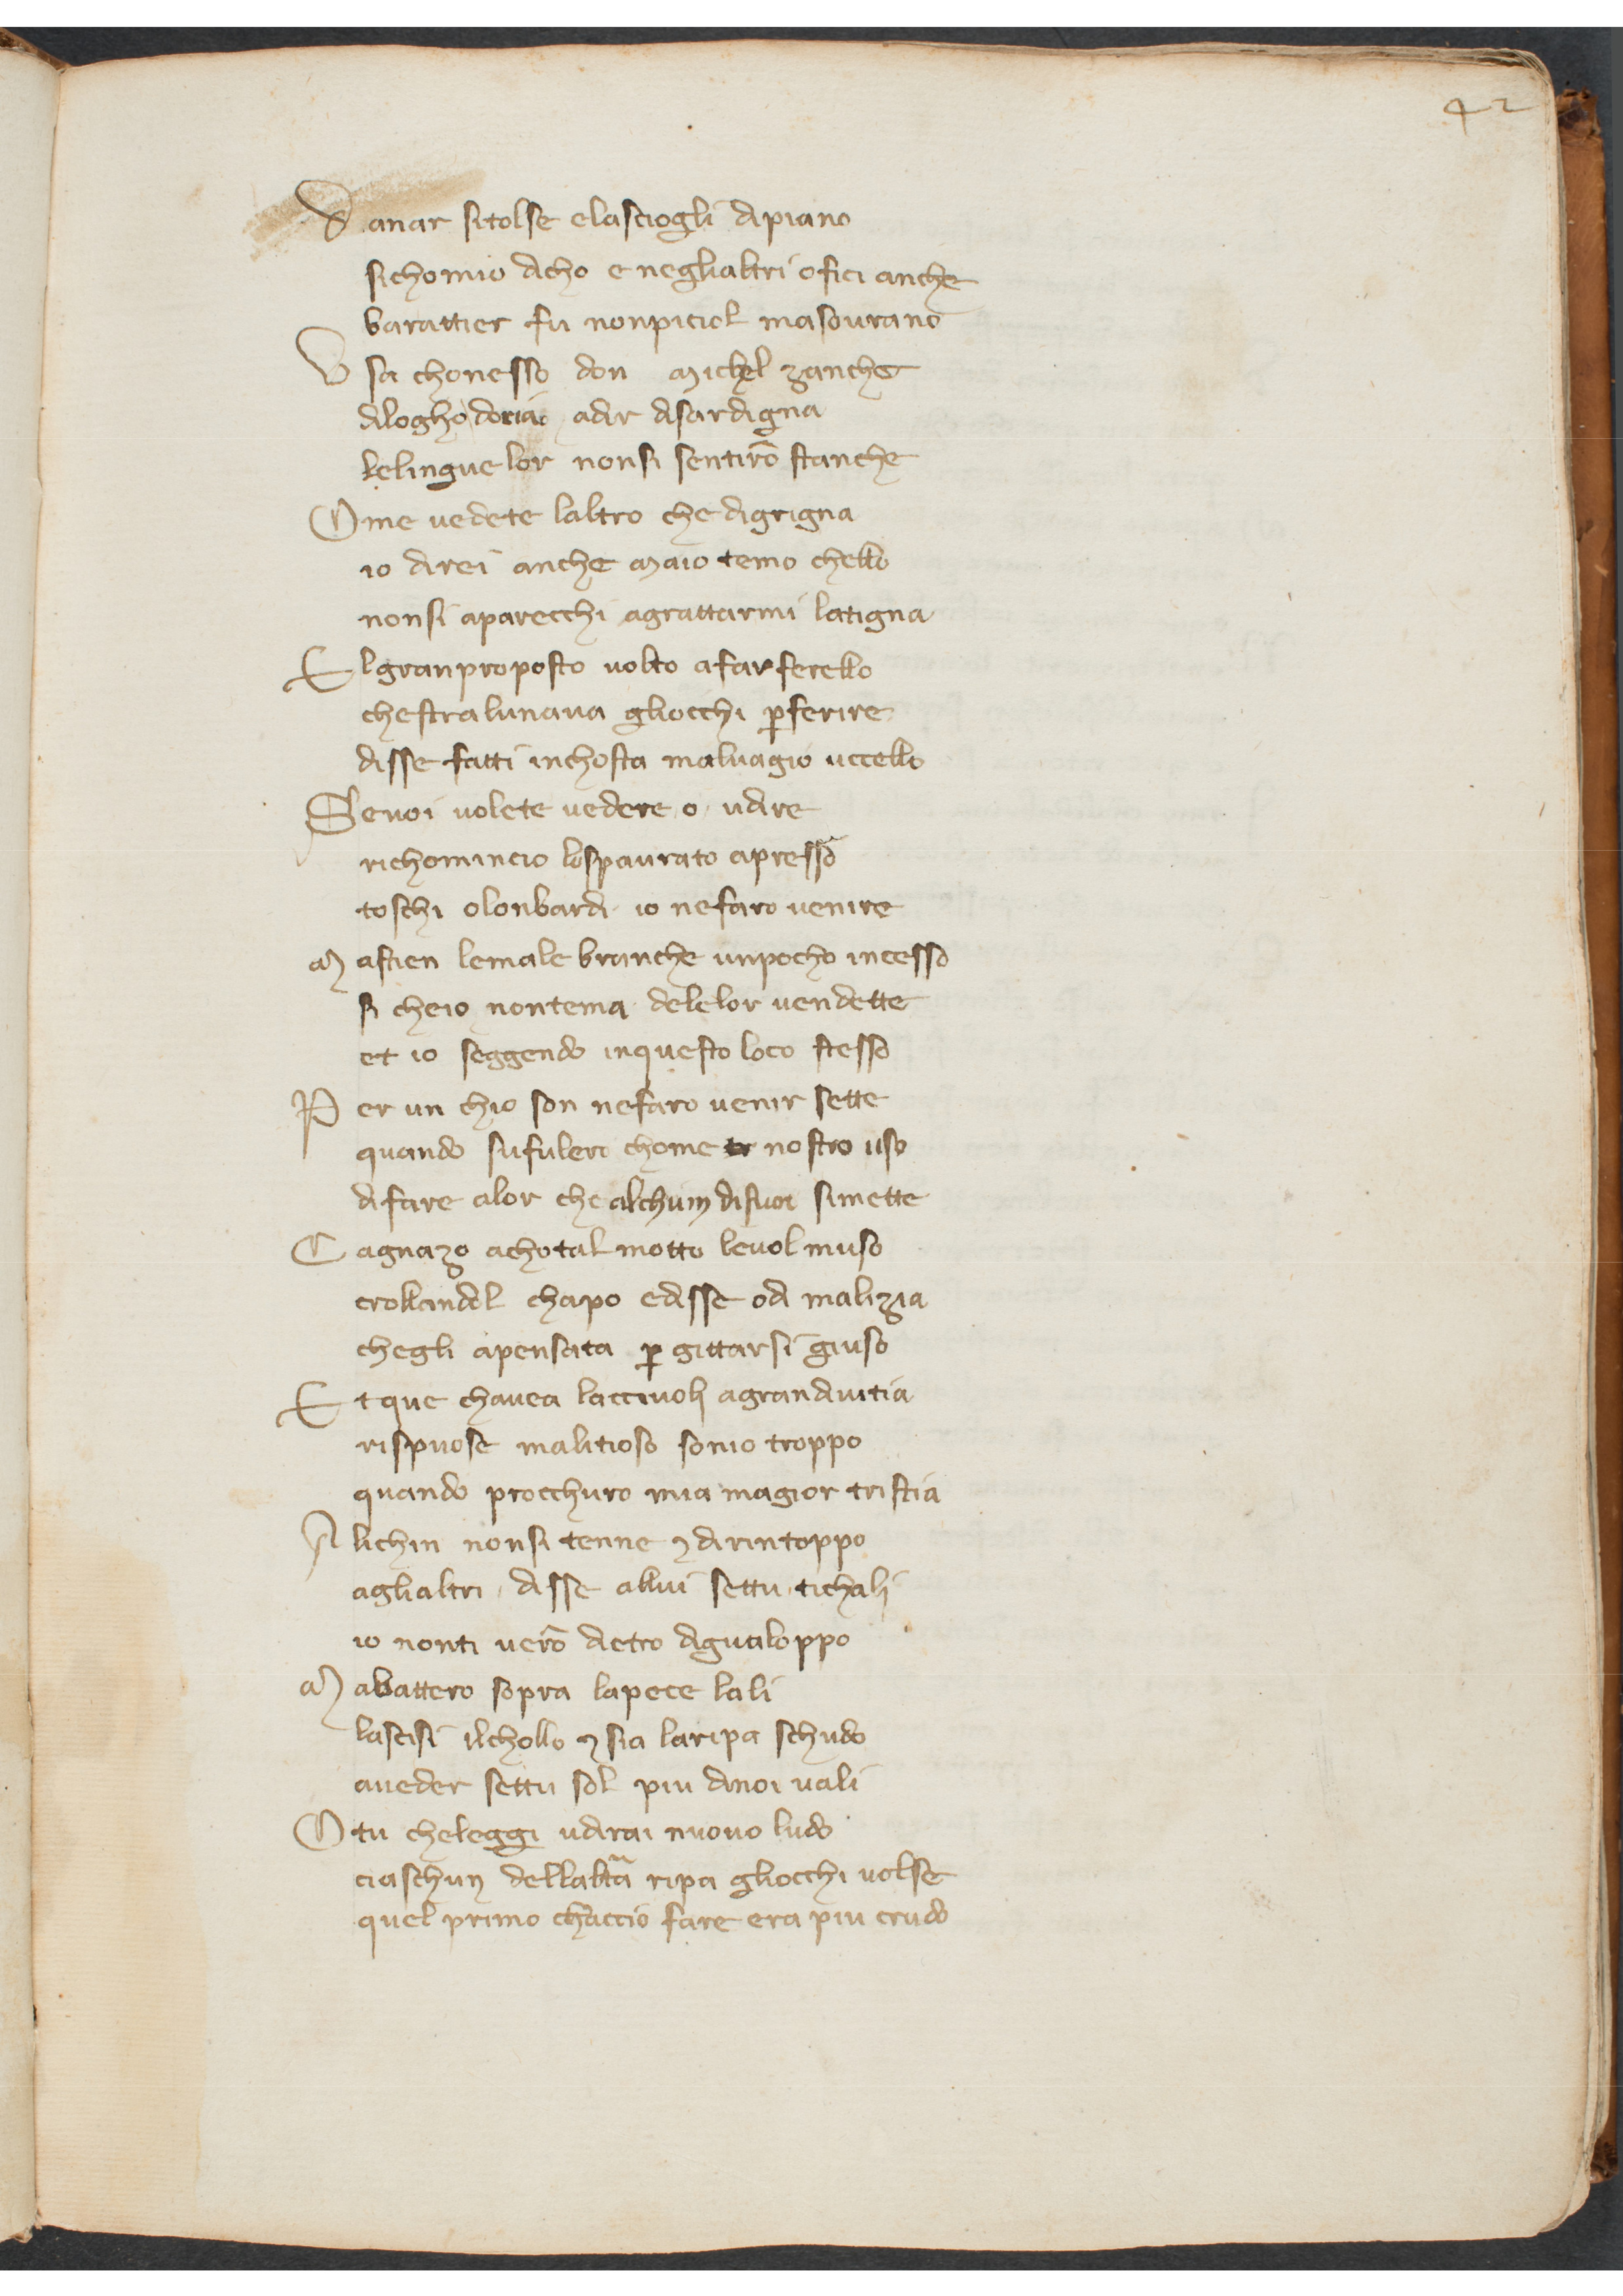 42
Danar sitolse elasciogli dipiano
sichomio dicho e neglialtri ofici anche
barattier fu nonpiciol masourano
Usa chonesso don michel zanche
dilogho doriao adir disardigna
lelingue lor nonsi sentirō stanche
Ome uedete laltro chedigrigna
io direi anche maio temo chello
nonsi aparecchi agrattarmi latigna
El granproposto uolto afarferello
chestralunaua gliocchi ꝑferire
disse fatti inchosta maluagio uccello
Seuoi uolete uedere o udire
richomincio lospaurato apresso
toschi olonbardi io nefaro uenire
Mastien lemale branche unpocho incesso
si cheio nontema delelor uendette
et io seggendo inquesto loco stesso
Per un chio son nefaro uenir sette
quando sufulero chome nostro uso
difare alor che alchun difuor simette
Cagnazo achotal motto leuol muso
crollandol chapo edisse odi malizia
chegli apensata ꝑ gittarsi giuso
Et que chauea lacciuoli agrandiuitia
rispuose malitioso sonio troppo
quando procchuro mia magior tristia
Alichin nonsi tenne ⁊ dirintoppo
aglialtri disse allui settu tichali
io nonti uerō dietro digualoppo
Mabattero sopra lapece lali
lascisi ilchollo ⁊ sia laripa schudo
aueder settu sol piu dinoi uali
O tu cheleggi udirai nuouo ludo
ciaschun dellaltā ripa gliocchi uolse
quel primo chaccio fare era piu crudo